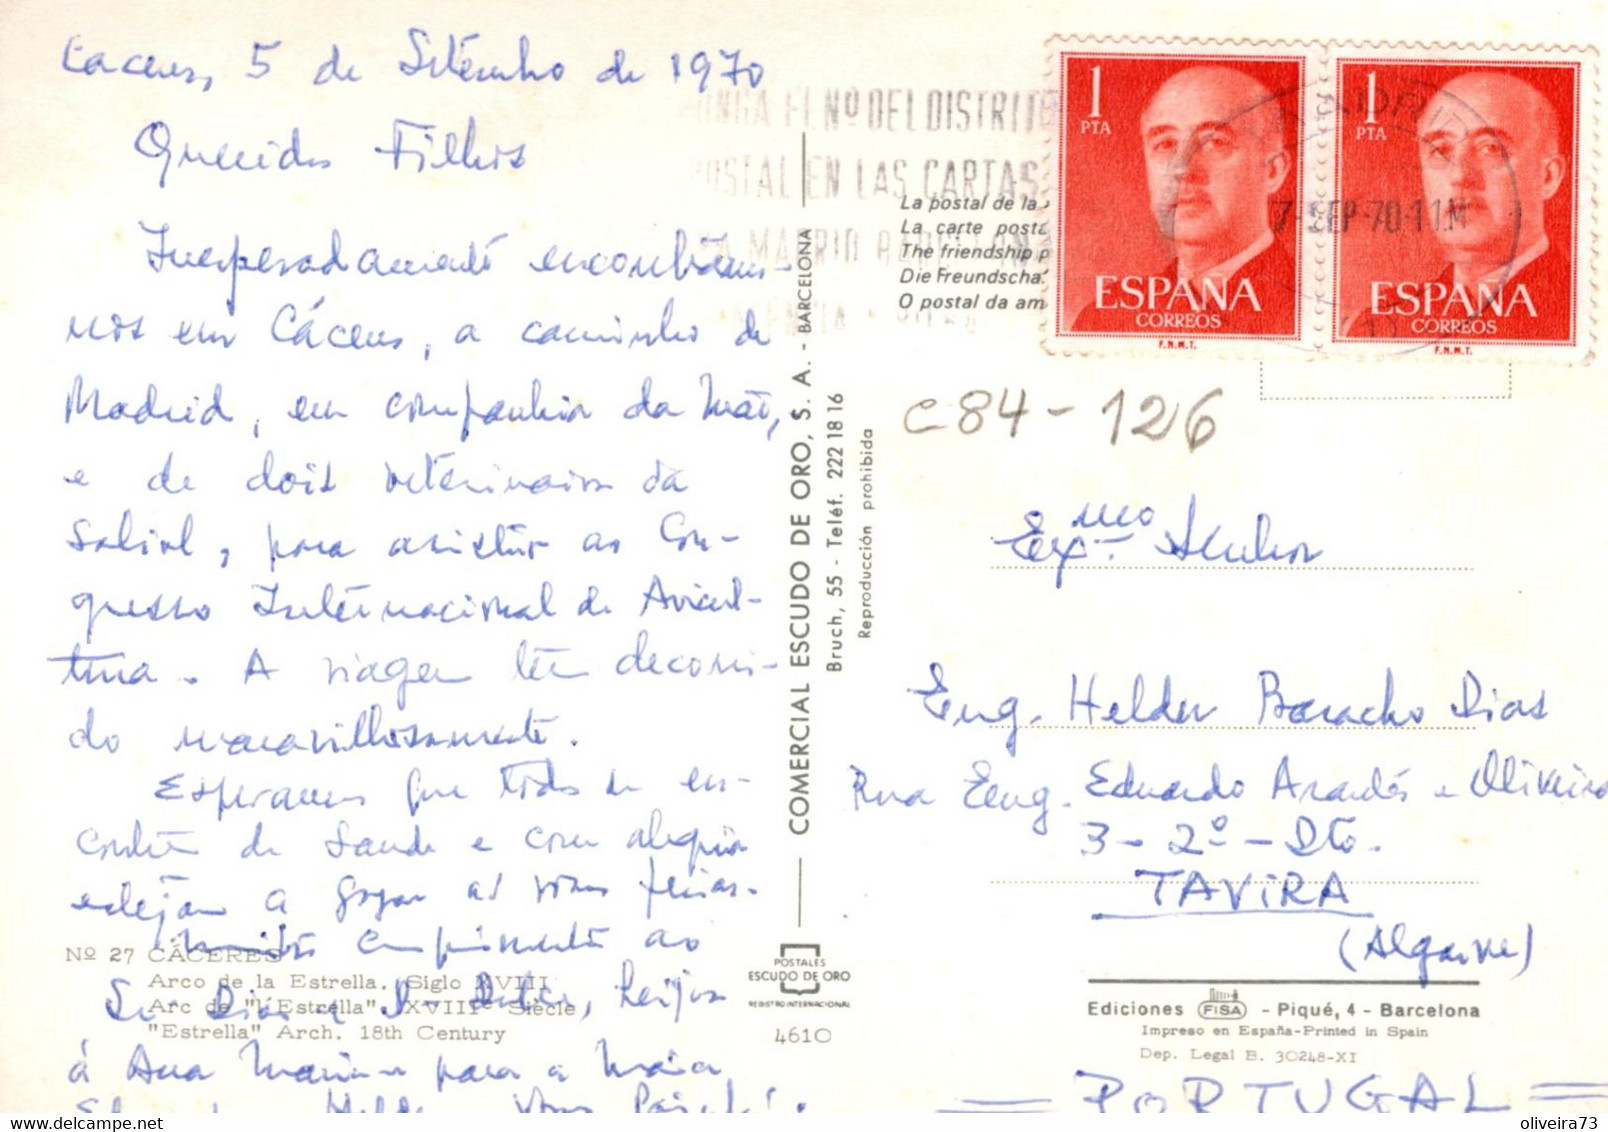 Caceres, 5 de Setembro de 1970
Queridos Filhos
Inesperadamente encontramo-
nos em Cáceres, a caminho de
Madrid, em companhia da Mãe,
e de dois veterinarios da
para assistir ao Con-
gresso Internacional de Avicul-
tura. A viagem tem decorri-
do maravilhosamente.
Esperamos que todos se en-
contrem de saude e com alegria
estejam a gozar as vossas ferias.
Muitos cumprimentos ao
Sr. Dias e D. beijos
á Ana Maria e para a
Nº 27 CÁCERES
Arco de la Estrella. Siglo XVIII
Arc de "l'Estrella". XVIIIe Siècle
"Estrella" Arch. 18th Century
COMERCIAL ESCUDO DE ORO, S. A. - BARCELONA
Bruch, 55 - Teléf. 222 18 16
Reproducción prohibida
POSTALES
ESCUDO DE ORO
REGISTRO INTERNACIONAL
4610
PONGA EL Nº DEL DISTRITO
POSTAL EN LAS CARTAS
MADRID
La postal de la
La carte posta
The friendship p
Die Freundscha
O postal da am
1
PTA
ESPAÑA
CORREOS
F.N.M.T.
1
PTA
ESPAÑA
CORREOS
F.N.M.T.
MADRID
7-SEP-70-11M
C84-126
Exmo Senhor
Eng. Helder Baracho Dias
Rua Eng. Eduardo Arantes e Oliveira
3-2º-Dto.
TAVIRA
(Algarve)
Ediciones FISA - Piqué, 4 - Barcelona
Impreso en España-Printed in Spain
Dep. Legal B. 30248-XI
= PORTUGAL =
oliveira73